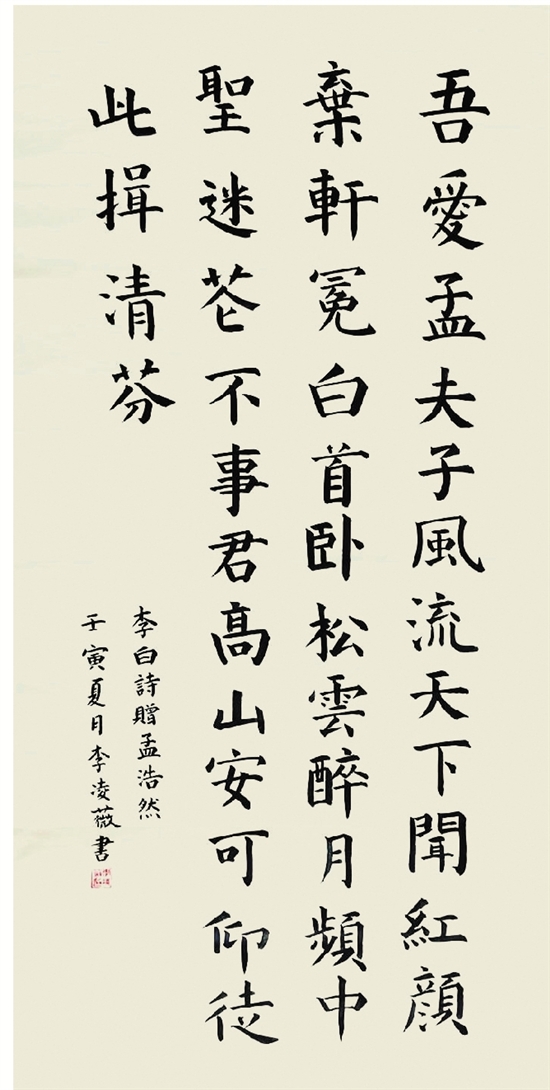 吾愛孟夫子風流天下聞紅顔
棄軒冕白首卧松雲醉月頻中
聖迷花不事君髙山安可仰徒
此揖清芬
李白詩贈孟浩然
壬寅夏月李凌薇書